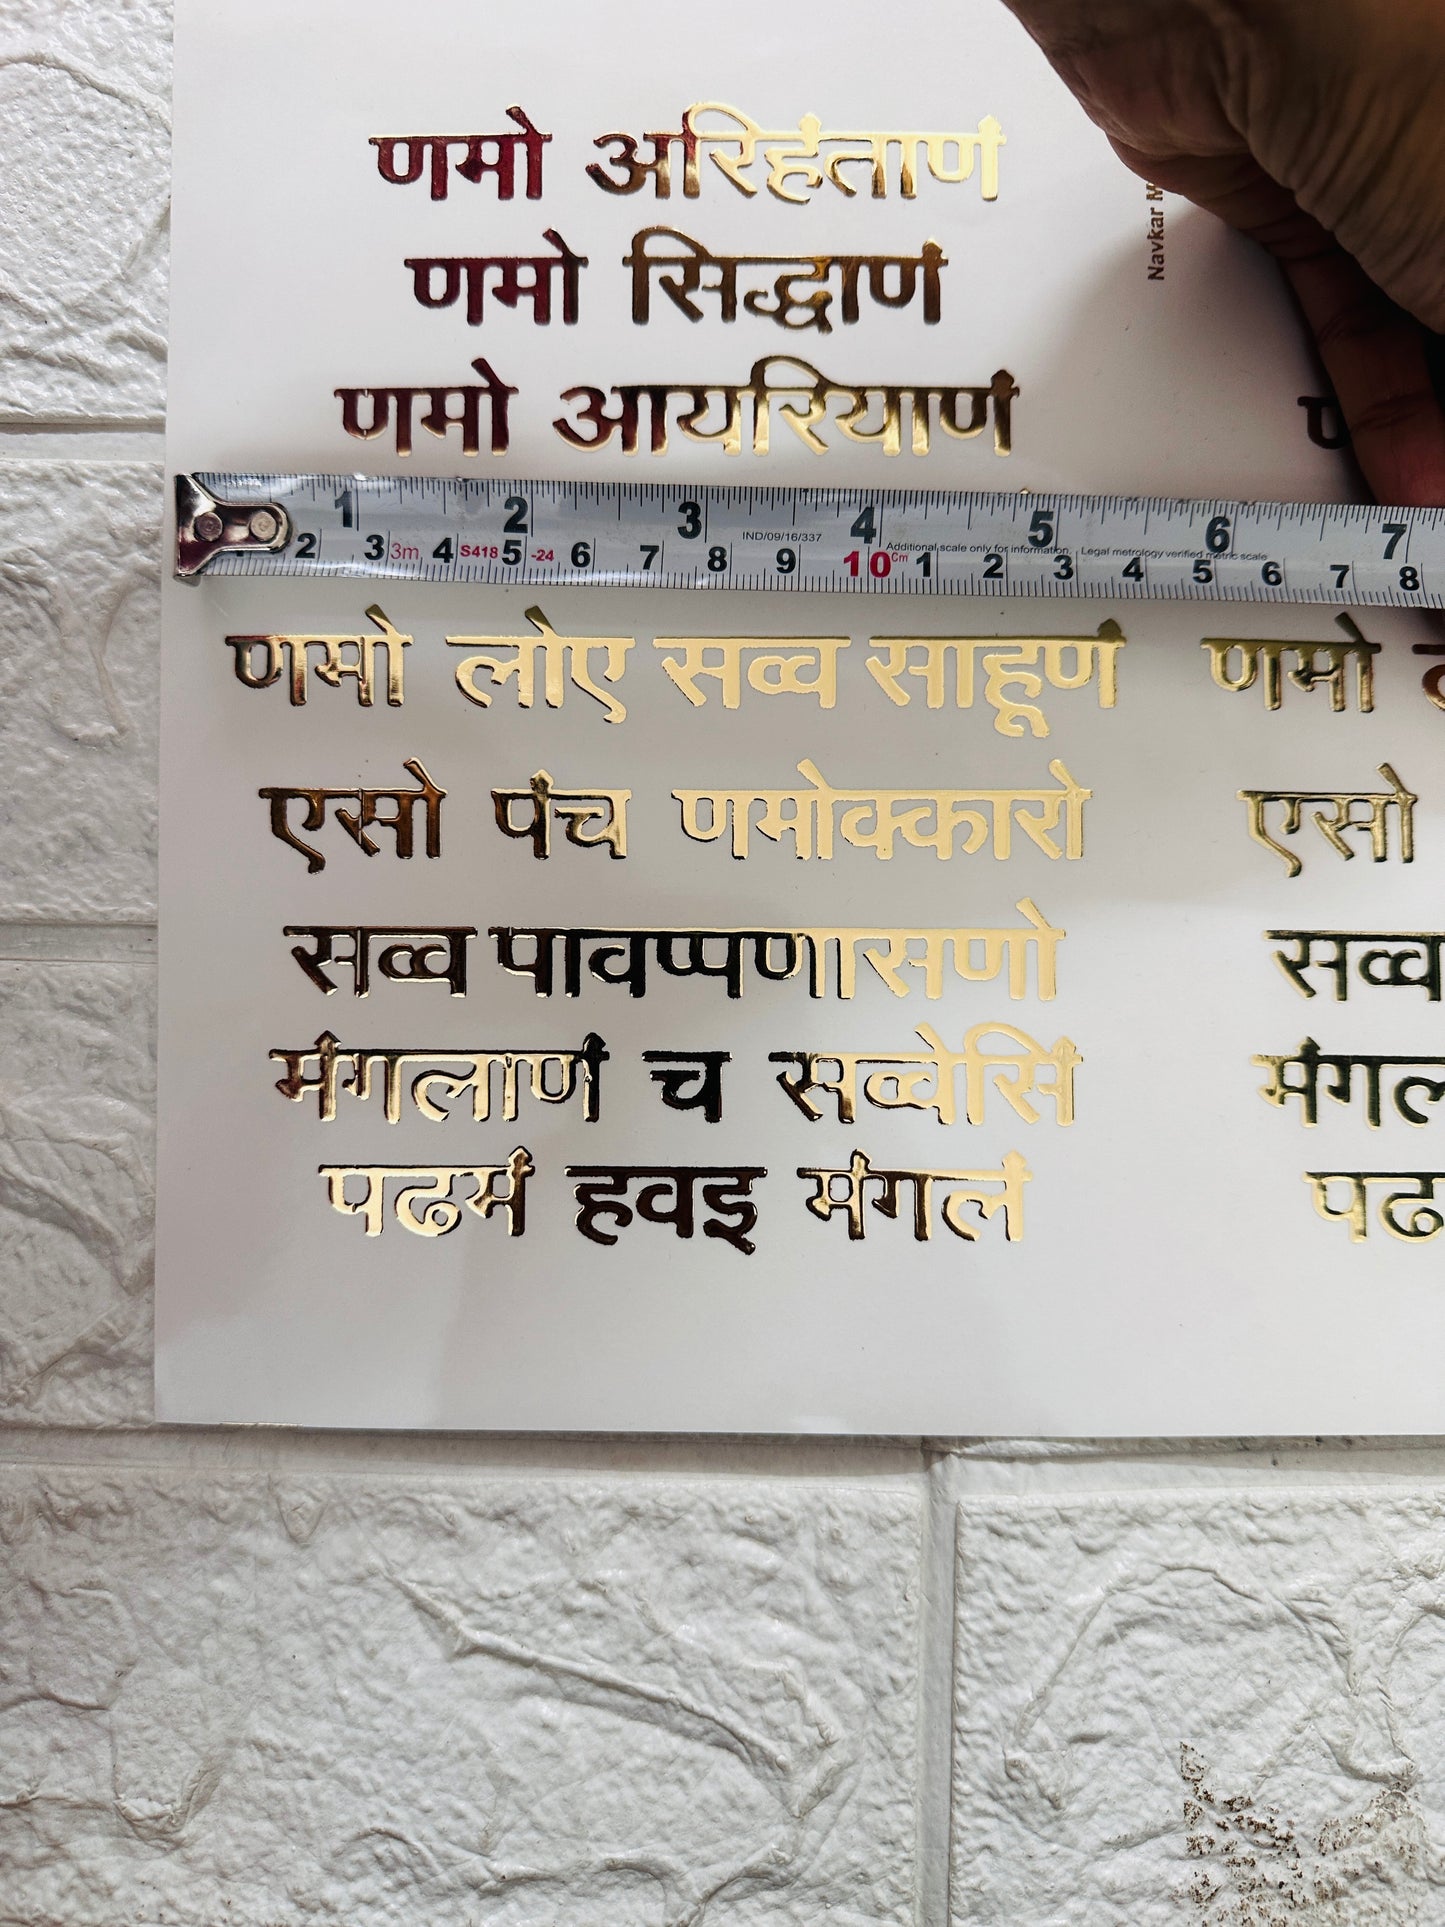 णमो अरिहंताणं
णमो सिद्धाणं
णमो आयरियाणं
Navkar
1 2 3 4 5 6 7
IND/09/16/337
Additional scale only for information. Legal metrology verified metric scale
2 3 3m 4 S418 5 -24 6 7 8 9 10 Cm 1 2 3 4 5 6 7 8
णमो लोए सव्व साहूणं
णमो
एसो पंच णमोक्कारो
एसो
सव्व पावप्पणासणो
सव्व
मंगलाणं च सव्वेसिं
मंगल
पढमं हवइ मंगलं
पढ